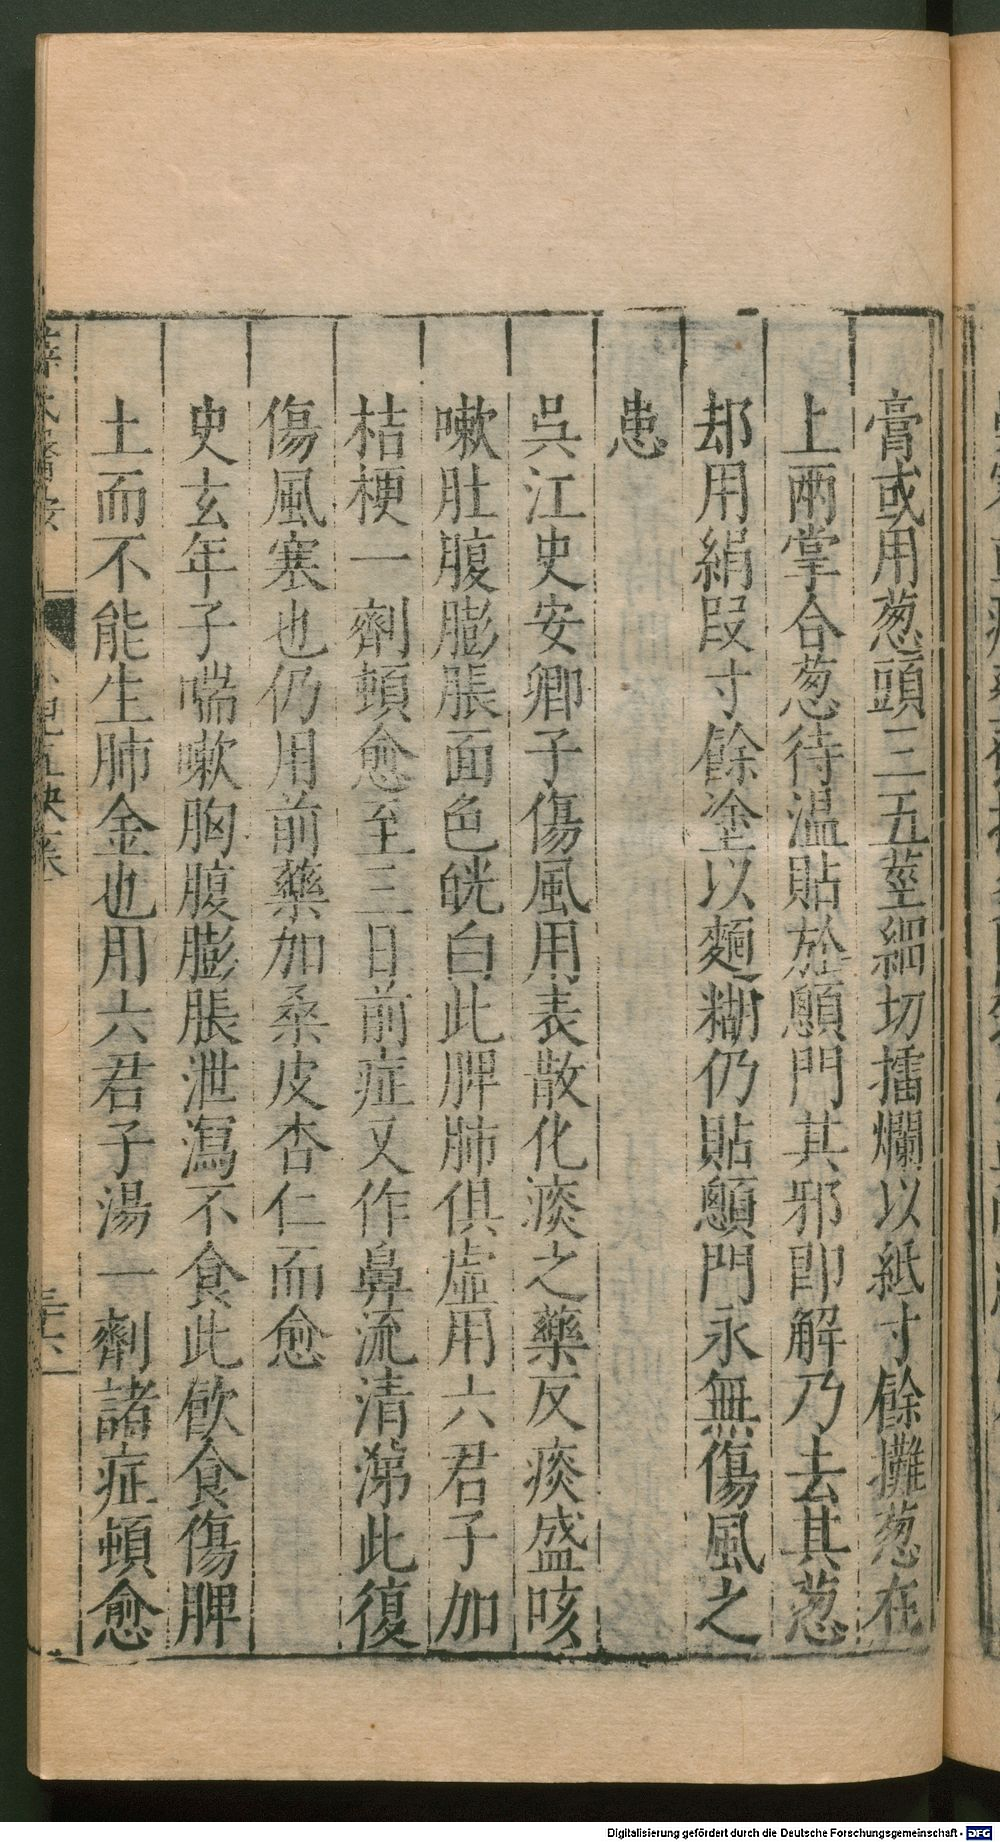 膏或用葱頭三五莖細切擂爛以紙寸餘攤葱在
上兩掌合葱待温貼於顖門其邪即解乃去其葱
却用絹段寸餘塗以麵糊仍貼顖門永無傷風之
患
吳江史安卿子傷風用表散化痰之藥反痰盛咳
嗽肚腹膨脹面色㿠白此脾肺俱虛用六君子加
桔梗一劑頓愈至三日前症又作鼻流清涕此復
傷風寒也仍用前藥加桑皮杏仁而愈
史玄年子喘嗽胸腹膨脹泄瀉不食此飲食傷脾
土而不能生肺金也用六君子湯一劑諸症頓愈
Digitalisierung gefördert durch die Deutsche Forschungsgemeinschaft - DFG